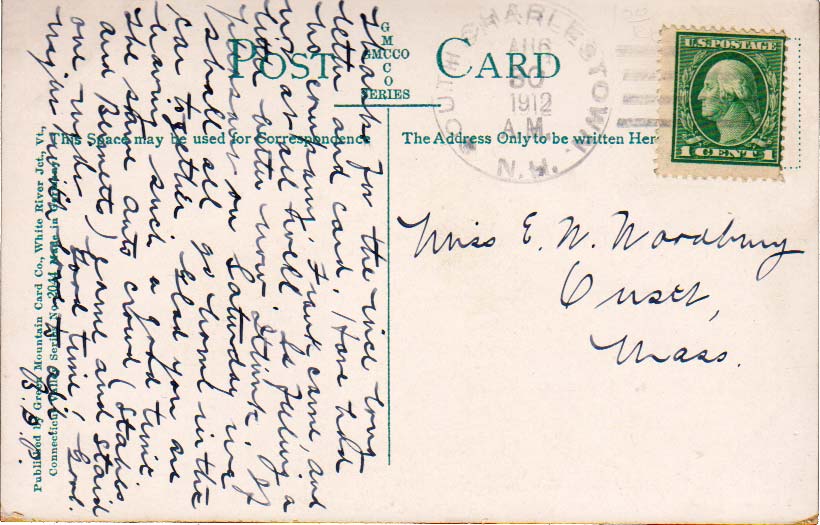 POST CARD
G
M
GMCCO
C
O
SERIES
SOUTH CHARLESTOWN
AUG
30
1912
A.M.
N.H.
U.S. POSTAGE
1 CENT 1
This Space may be used for Correspondence
The Address Only to be written Here
Thanks for the nice long
letter and card. Have had
no company. Frank came, and
was at all well. Is feeling a
little better now. I think if
pleasant on Saturday we
shall all go home in the
car together. Glad you are
having such a good time.
The same auto crowd (Stables
and Bennett) came and staid
one night. Good time. Good
night with love to all.
B.B.
Miss E. W. Woodbury
Onset,
Mass.
Published by Green Mountain Card Co., White River Jct., Vt.,
Connecticut Valley Series No. 2041 Made in Germany